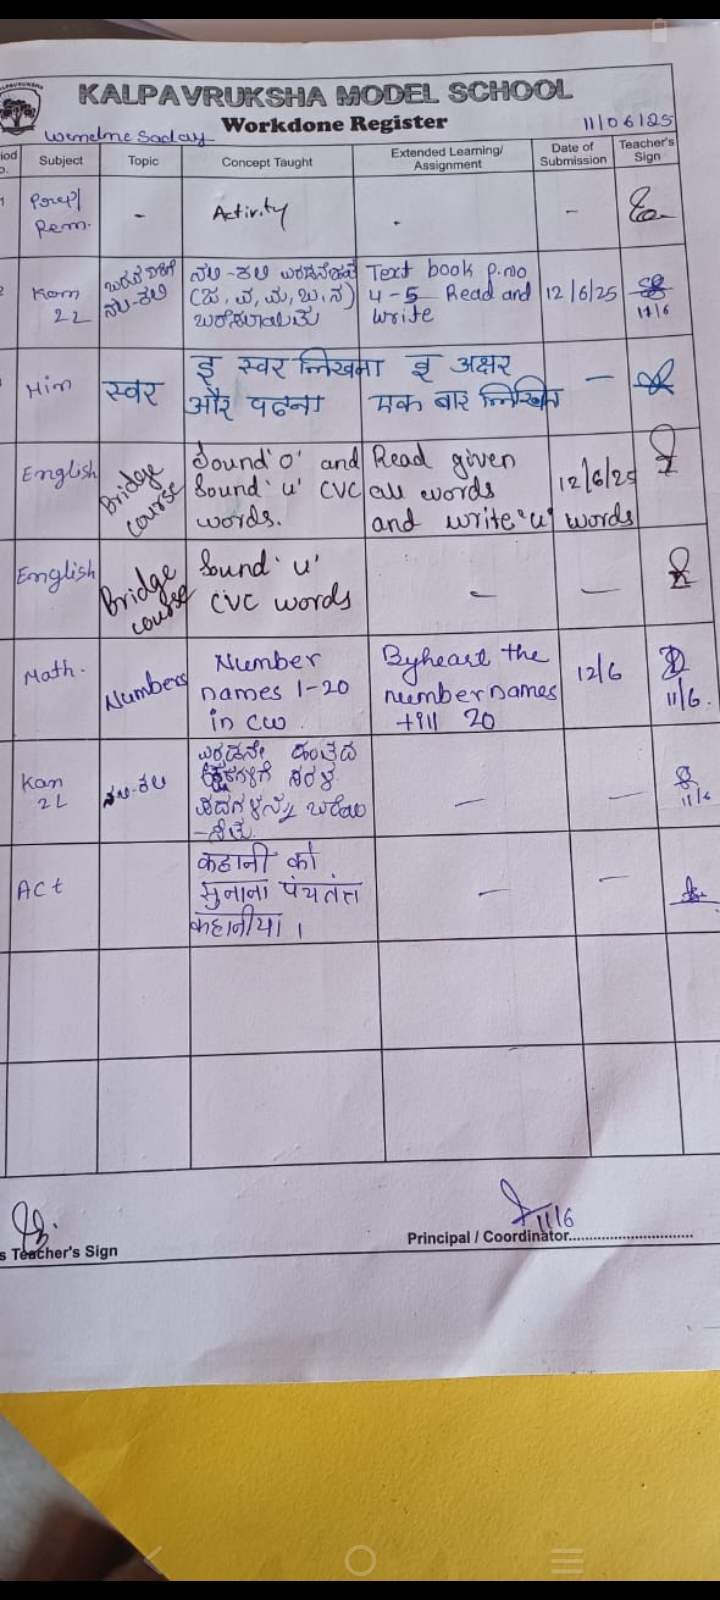 KALPAVRUKSHA MODEL SCHOOL
Workdone Register
11/06/25
Subject Topic Concept Taught Extended Learning/ Assignment Date of Submission Teacher's Sign
Rem. - Activity - -
Kan 2L
ನಲಿ-ಕಲಿ
Text book p.no
4-5 Read and
write
12/6/25
11/6
Hin
स्वर
इ स्वर लिखना
और पढना
इ अक्षर
एक बार लिखित
-
English
Bridge
course
Sound 'o' and
Sound 'u' CVC
words.
Read given
all words
and write 'u' words
12/6/25
English
Bridge
course
Sound 'u'
CVC words
-
-
Math.
Numbers
Number
names 1-20
in cw.
Byheart the
number names
till 20
12/6
11/6.
Kan
2L
ನಲಿ-ಕಲಿ
-
-
11/6
ACt
कहानी को
सुनाना पंचतंत्र
कहानीया ।
-
-
Teacher's Sign
11/6
Principal / Coordinator